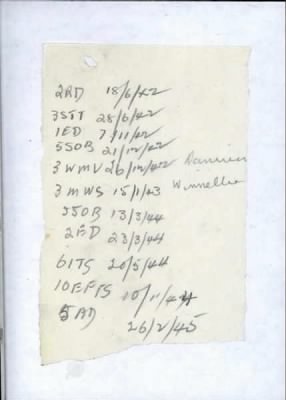 2RD 18/6/42
3STT 28/6/42
1ED 7/11/42
55OB 21/12/42
3 WMU 26/12/42 Darwin
3 MWS 15/1/43 Winnellie
55OB 13/3/44
2ED 23/3/44
6ITS 20/5/44
10EFTS 10/11/44
5AD
26/2/45